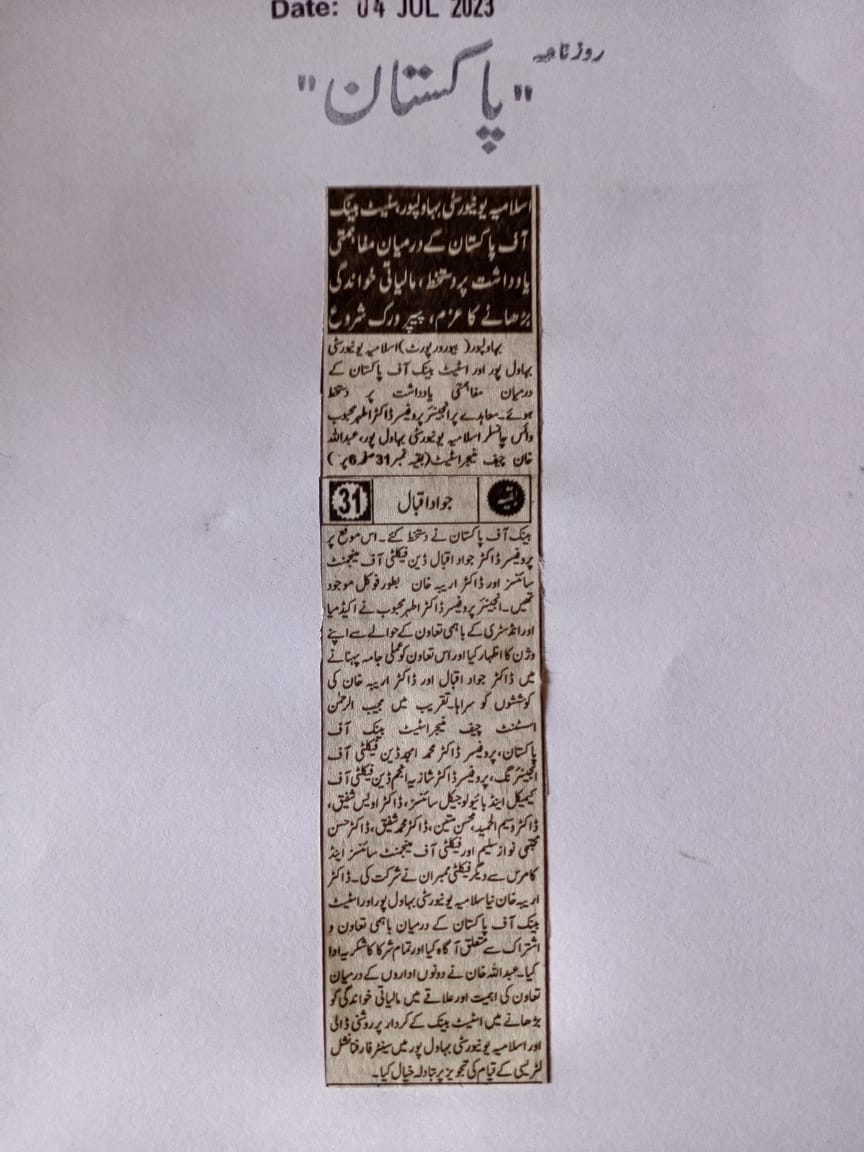 Date: 04 JUL 2023
روزنامہ
"پاکستان"
اسلامیہ یونیورسٹی بہاولپور، سٹیٹ بینک
آف پاکستان کے درمیان مفاہمتی
یادداشت پر دستخط، مالیاتی خواندگی
بڑھانے کا عزم، پیپر ورک شروع
بہاولپور( بیورورپورٹ) اسلامیہ یونیورسٹی
بہاول پور اور اسٹیٹ بینک آف پاکستان کے
درمیان مفاہمتی یادداشت پر دستخط
ہوئے۔ معاہدے پر انجینئر پروفیسر ڈاکٹر اطہر محبوب
وائس چانسلر اسلامیہ یونیورسٹی بہاول پور، عبداللہ
خان چیف منیجر اسٹیٹ (بقیہ نمبر 31 صفحہ 6 پر )
بقیہ جواد اقبال 31
بینک آف پاکستان نے دستخط کئے۔ اس موقع پر
پروفیسر ڈاکٹر جواد اقبال ڈین فیکلٹی آف مینجمنٹ
سائنسز اور ڈاکٹر اریبہ خان بطور فوکل موجود
تھیں۔ انجینئر پروفیسر ڈاکٹر اطہر محبوب نے اکیڈمیا
اور انڈسٹری کے باہمی تعاون کے حوالے سے اپنے
وژن کا اظہار کیا اور اس تعاون کو عملی جامہ پہنانے
میں ڈاکٹر جواد اقبال اور ڈاکٹر اریبہ خان کی
کوششوں کو سراہا۔ تقریب میں مجیب الرحمٰن
اسسٹنٹ چیف منیجر اسٹیٹ بینک آف
پاکستان، پروفیسر ڈاکٹر محمد امجد ڈین فیکلٹی آف
انجینئرنگ، پروفیسر ڈاکٹر شازیہ انجم ڈین فیکلٹی آف
کیمیکل اینڈ بائیولوجیکل سائنسز، ڈاکٹر اویس شفیق،
ڈاکٹر وسیم الحمید، محسن متین، ڈاکٹر محمد شفیق، ڈاکٹر حسن
مجتبیٰ نواز سلیم اور فیکلٹی آف مینجمنٹ سائنسز اینڈ
کامرس سے دیگر فیکلٹی ممبران نے شرکت کی۔ ڈاکٹر
اریبہ خان نیا سلامیہ یونیورسٹی بہاول پور اور اسٹیٹ
بینک آف پاکستان کے درمیان باہمی تعاون و
اشتراک سے متعلق آگاہ کیا اور تمام شرکا کا شکریہ ادا
کیا۔ عبداللہ خان نے دونوں اداروں کے درمیان
تعاون کی اہمیت اور علاقے میں مالیاتی خواندگی کو
بڑھانے میں اسٹیٹ بینک کے کردار پر روشنی ڈالی
اور اسلامیہ یونیورسٹی بہاول پور میں سینٹر فار فنانشل
لٹریسی کے قیام کی تجویز پر تبادلہ خیال کیا۔